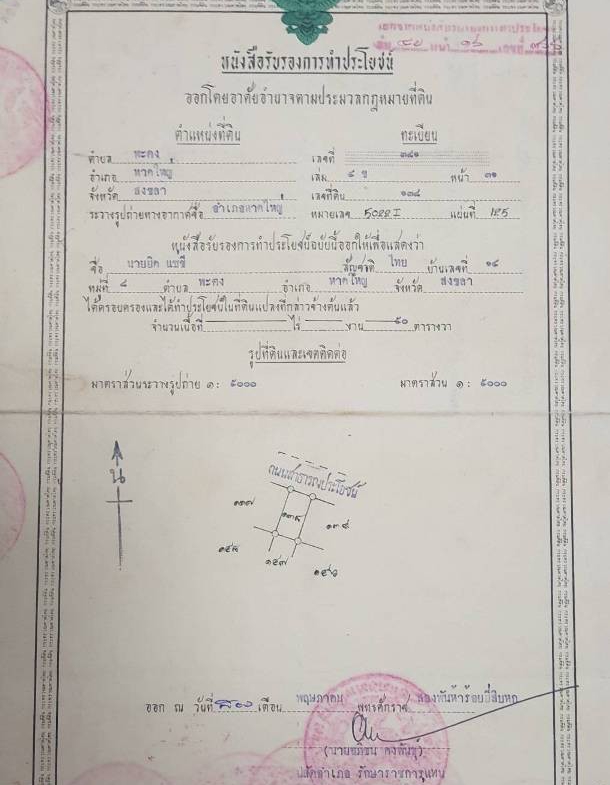 หนังสือรับรองการทำประโยชน์
ออกโดยอาศัยอำนาจตามประมวลกฎหมายที่ดิน
ตำแหน่งที่ดิน ทะเบียน
ตำบล พะตง เลขที่ ๓๘๑
อำเภอ หาดใหญ่ เล่ม ๔ ข หน้า ๓๑
จังหวัด สงขลา เลขที่ดิน ๑๓๘
ระวางรูปถ่ายทางอากาศชื่อ อำเภอหาดใหญ่ หมายเลข 5022 I แผ่นที่ 125
หนังสือรับรองการทำประโยชน์ฉบับนี้ออกให้เพื่อแสดงว่า
ชื่อ นายยิด แซ่ซี สัญชาติ ไทย บ้านเลขที่ ๑๔
หมู่ที่ ๘ ตำบล พะตง อำเภอ หาดใหญ่ จังหวัด สงขลา
ได้ครอบครองและได้ทำประโยชน์ในที่ดินแปลงที่กล่าวข้างต้นแล้ว
จำนวนเนื้อที่ ไร่ งาน ๕๐ ตารางวา
รูปที่ดินและเขตติดต่อ
มาตราส่วนระวางรูปถ่าย ๑ : ๕๐๐๐ มาตราส่วน ๑ : ๕๐๐๐
น
ถนนสาธารณประโยชน์
๑๓๗
๑๓๘
๑๔๗
ออก ณ วันที่ เดือน พฤษภาคม พุทธศักราช สองพันห้าร้อยยี่สิบหก
ปลัดอำเภอ รักษาราชการแทน